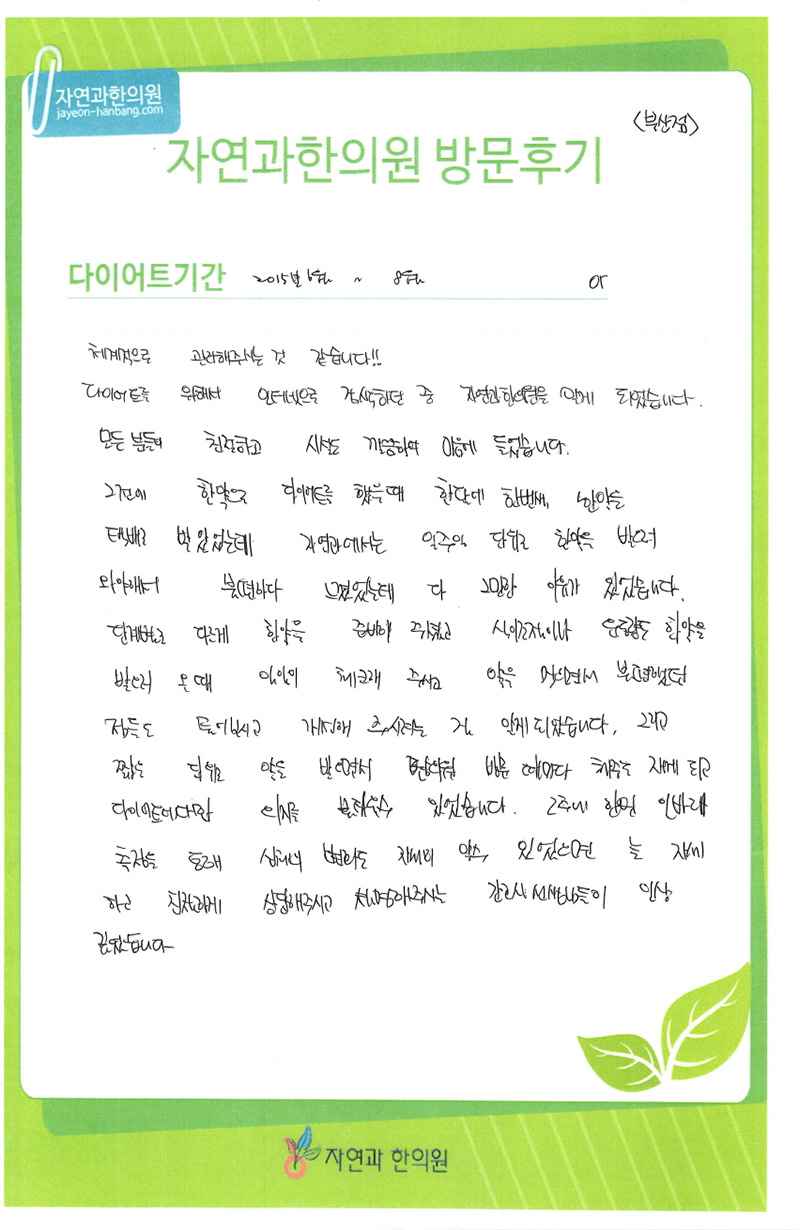 자연과한의원
jayeon-hanbang.com
<부산점>
자연과한의원 방문후기
다이어트기간 2015년 6월 ~ 8월 or
체계적으로 관리해주시는 것 같습니다!!
다이어트를 위해서 인터넷으로 검색하던 중 자연과한의원을 알게 되었습니다.
모든 분들이 친절하고 시설도 깔끔하여 마음에 들었습니다.
그전에 한약으로 다이어트를 했을때 한달에 한번씩, 한약을
택배로 받았었는데 자연과에서는 일주일 단위로 한약을 받으러
와야해서 불편하다 느꼈었는데 다 그만한 이유가 있었습니다.
단계별로 다르게 한약을 준비해 주셨고 식이조절이나 운동량도 한약을
받으러 올때 많이 체크해 주시고 약을 먹으면서 불편했던
점들도 물어보시고 개선해 주시려는 걸 알게되었습니다. 그리고
짧은 단위로 약을 받으면서 방문 때마다 체중을 재게 되고
다이어트에대한 의지를 불태울수 있었습니다. 2주에 한번 인바디
측정을 통해 상세히 변화도 자세히 알수 있었으며 늘 자세
하고 친절하게 상담해주시고 처방해주시는 간호사선생님들이 인상
깊었습니다
자연과 한의원